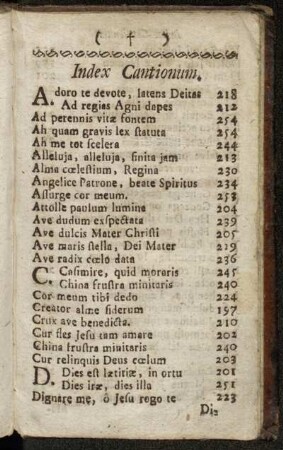 ( † )
Index Cantionum.
A. doro te devote, latens Deitas 218
Ad regias Agni dapes 212
Ad perennis vitæ fontem 254
Ah quam gravis lex statuta 254
Ah me tot scelera 244
Alleluja, alleluja, finita jam 213
Alma cœlestium, Regina 230
Angelice Patrone, beate Spiritus 234
Assurge cor meum. 253
Attolle paulum lumina 204
Ave dudum exspectata 239
Ave dulcis Mater Christi 205
Ave maris stella, Dei Mater 219
Ave radix cœlo data 236
C. Casimire, quid moraris 245
China frustra minitaris 240
Cor meum tibi dedo 224
Creator alme siderum 197
Crux ave benedicta. 210
Cur sles Jesu tam amare 202
China frustra miuitaris 240
Cur relinquis Deus cœlum 203
D. Dies est lætitiæ, in ortu 201
Dies iræ, dies illa 251
Dignare me, ô Jesu rogo te 223
Di-